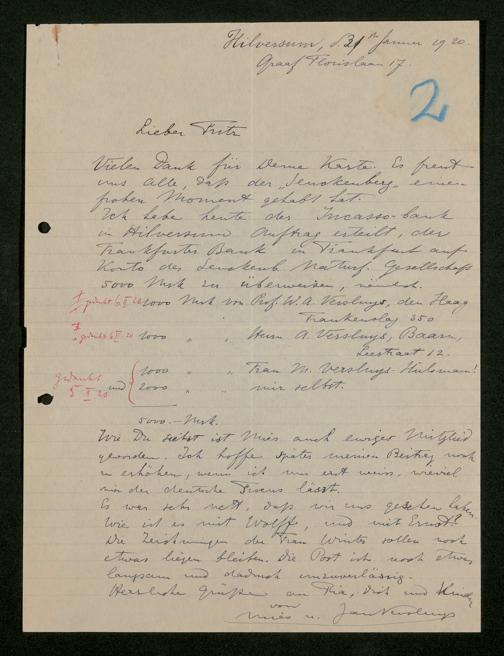 Hilversum, d. 31st Januar 1920.
Graaf Florislaan 17.
2
Lieber Fritz
Vielen Dank für Deine Karte. Es freut
uns alle, daß der "Senckenberg" einen
frohen Moment gehabt hat.
Ich habe heute der Incasso-bank
in Hilversum Auftrag erteilt, der
Frankfurter Bank in Frankfurt auf
Konto der Senckenb. Naturf. Gesellschaft
5000 Mrk zu überweisen, nämlich.
1000 Mrk von Prof. W. A. Versluys, den Haag
Frankenslag 350
1000 " " Herrn A. Versluys, Baarn,
Leestraat 12.
1000 " " Frau M. Versluys-Hulsman!
und 2000 " mir selbst.
gedankt
5000.- Mrk.
Wie Du siehst ist Mies auch ewiger Mitglied
geworden. Ich hoffe später meinen Beitrag noch
zu erhöhen, wenn ich nun erst weiss, wieviel
mir der deutsche Fiscus lässt.
Es war sehr nett, dass wir uns gesehen haben.
Wie ist es mit Wolff, und mit Ernst?
Die Zeichnungen der Frau Winter sollen noch
etwas liegen bleiben. Die Post ist noch etwas
langsam und dadurch unzuverlässig.
Herzliche Grüße an Pia, Dich und Kinder
von
Mies u. Jan Versluys